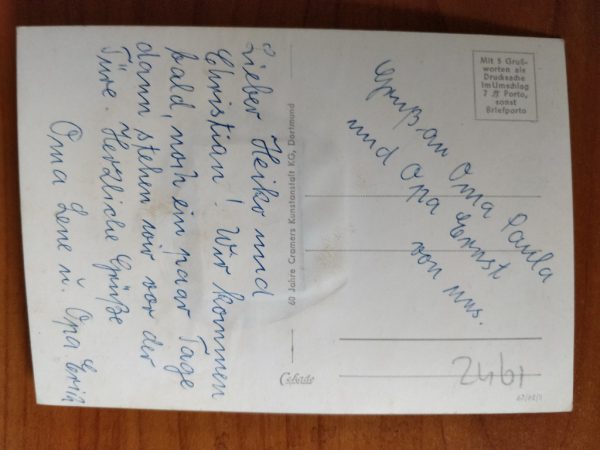 Lieber Heiko und
Christian! Wir kommen
bald, noch ein paar Tage
dann stehen wir vor der
Türe. Herzliche Grüße
Oma Lene u. Opa Erich
60 Jahre Cramers Kunstanstalt KG, Dortmund
Mit 5 Gruß-
worten als
Drucksache
Im Umschlag
7 Porto,
sonst
Briefporto
Gruß an Oma Paula
und Opa Ernst
von uns.
2461